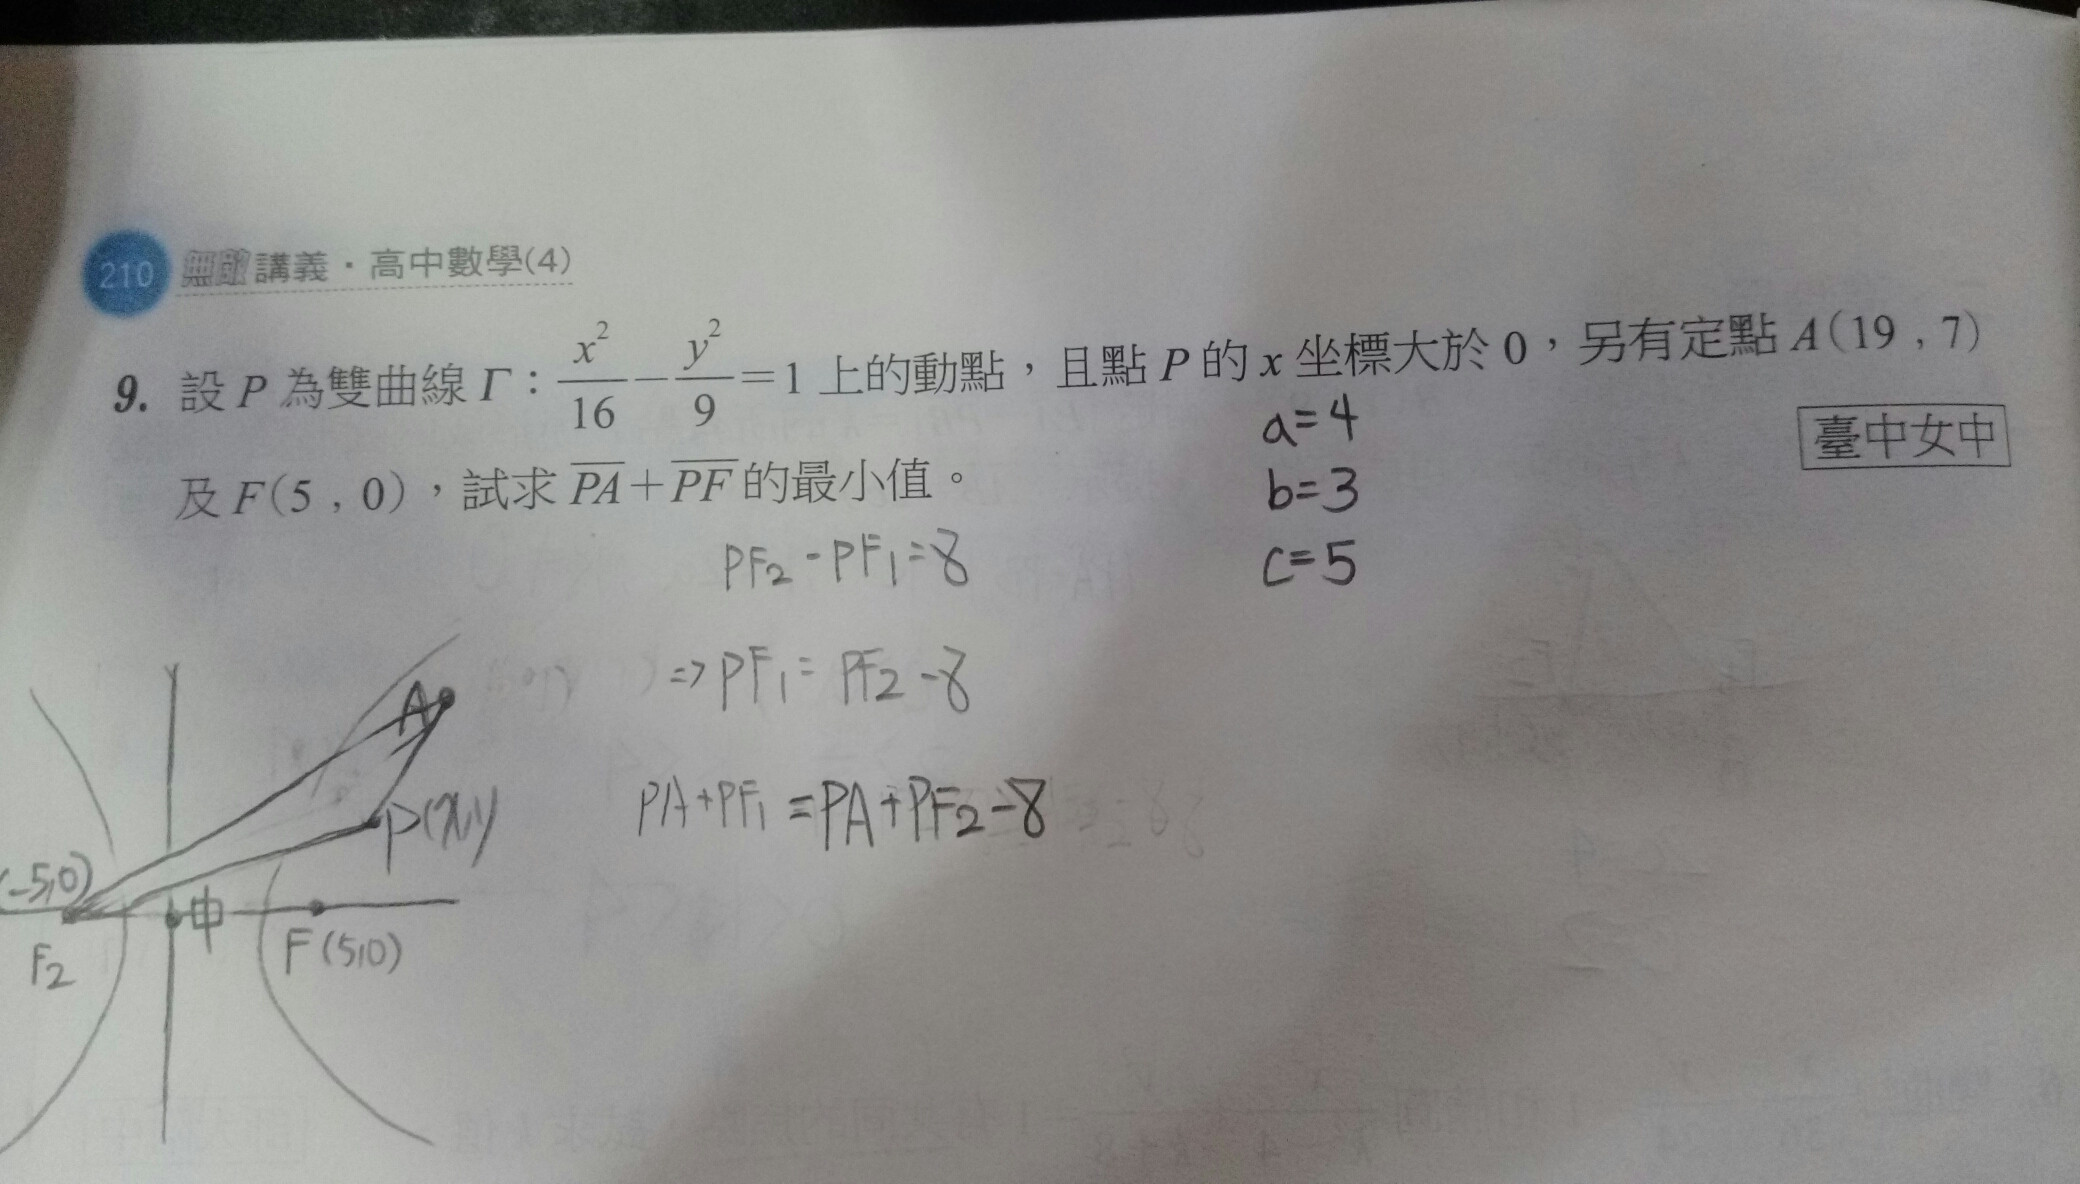 210 無敵講義・高中數學(4)
9. 設 P 為雙曲線 Γ：x²/16－y²/9＝1 上的動點，且點 P 的 x 坐標大於 0，另有定點 A(19，7)
及 F(5，0)，試求 PA＋PF 的最小值。
臺中女中
a=4
b=3
c=5
PF₂-PF₁=8
=>PF₁=PF₂-8
PA+PF₁=PA+PF₂-8
A
P(x,y)
(-5,0)
中
F₂
F(5,0)